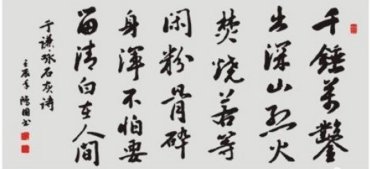 千錘萬鑿
出深山烈火
焚燒若等
闲粉骨碎
身渾不怕要
留清白在人間
于謙咏石灰詩
壬辰年 国书